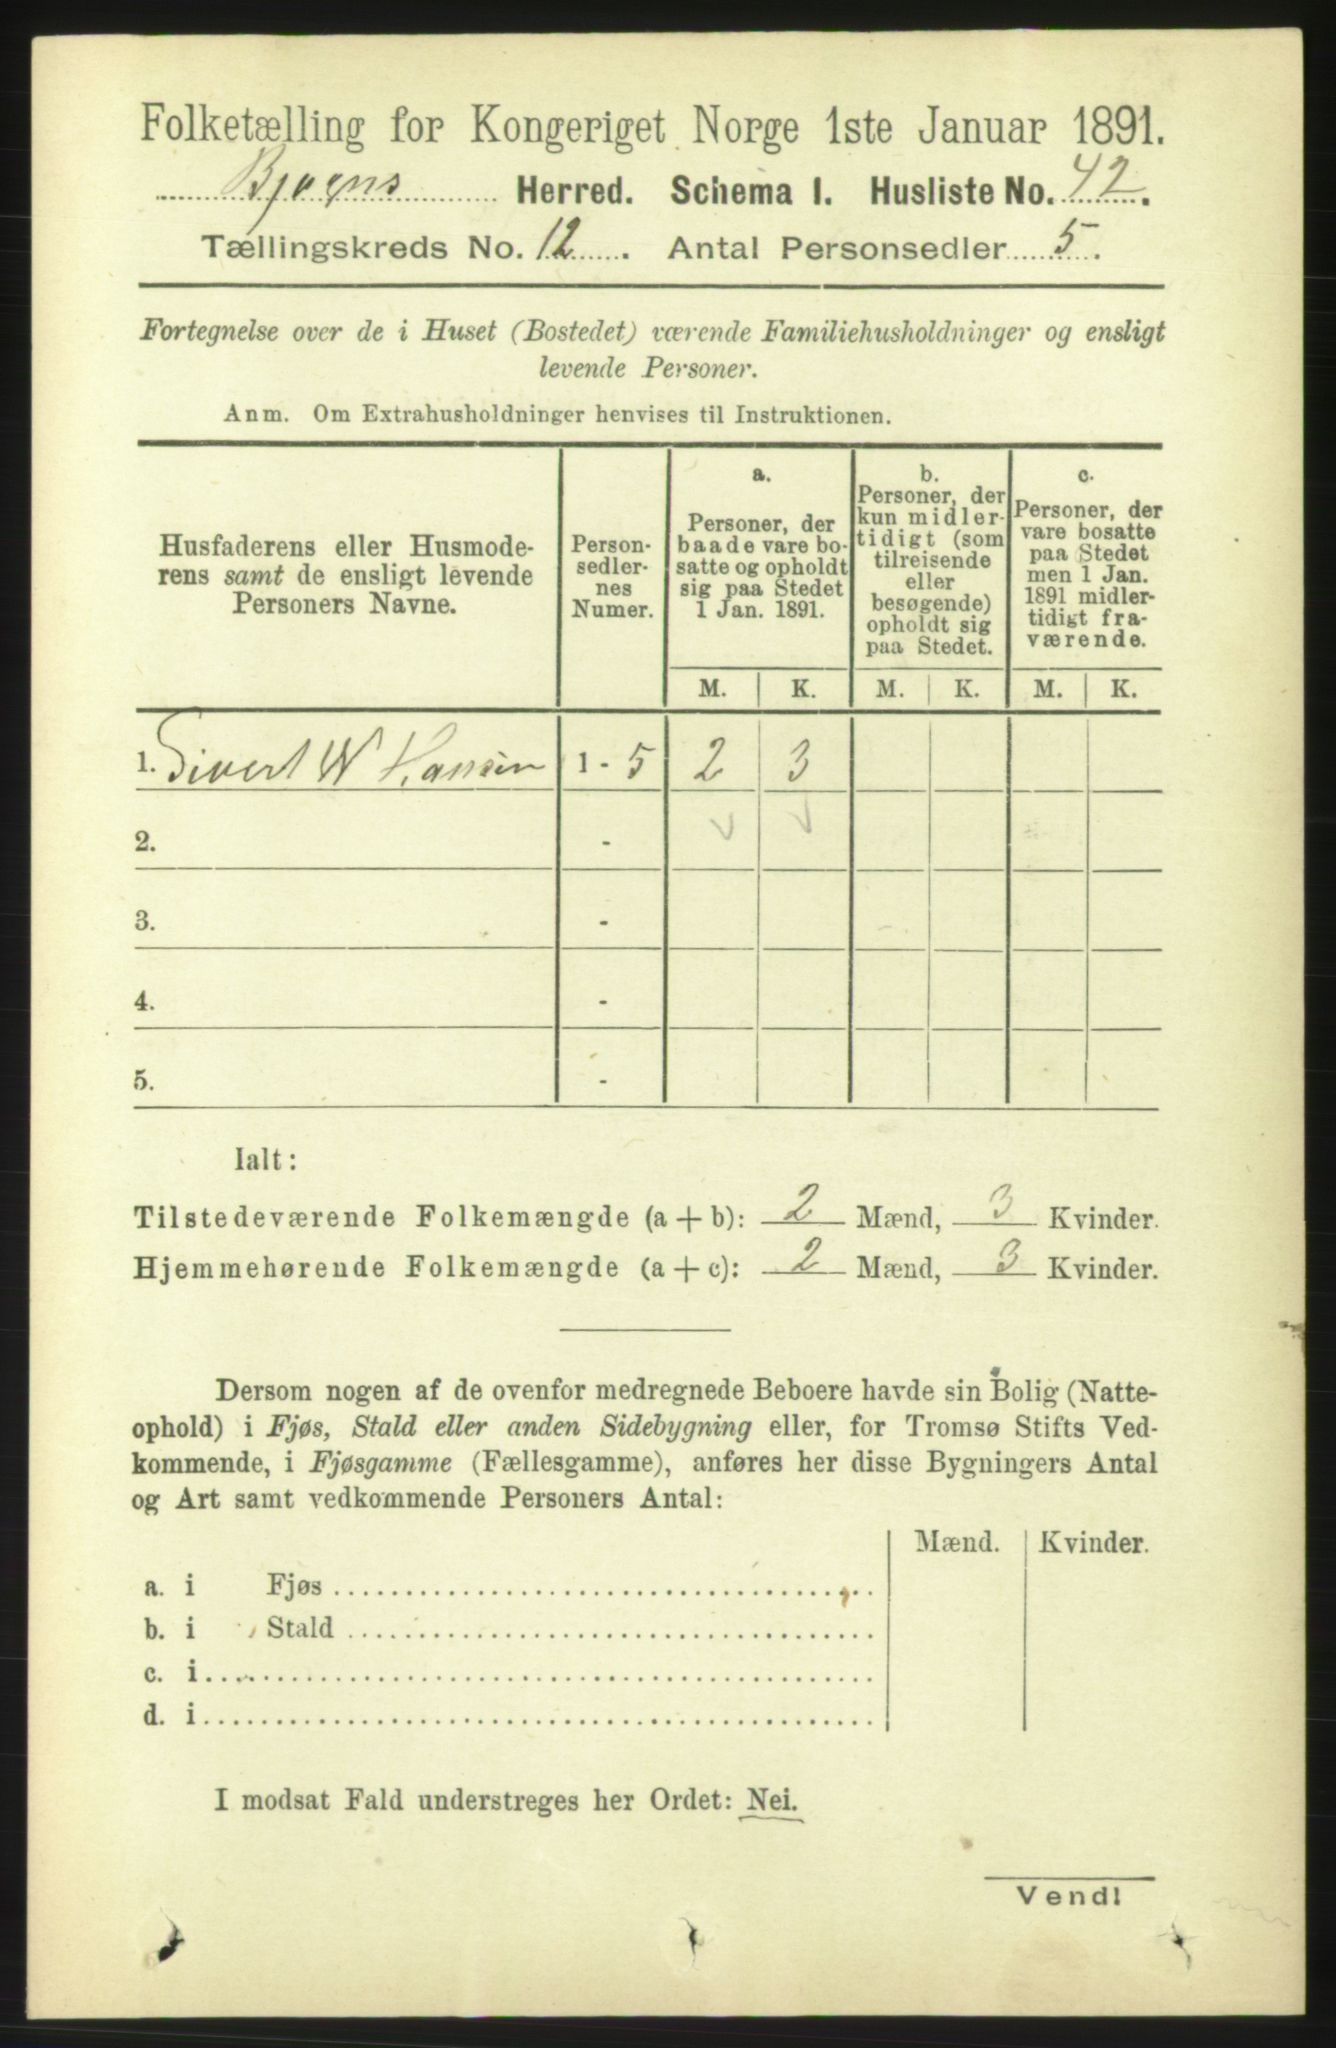 Folketælling for Kongeriget Norge 1ste Januar 1891.
Bjugns Herred. Schema I. Husliste No. 42.
Tællingskreds No. 12. Antal Personsedler 5.
Fortegnelse over de i Huset (Bostedet) værende Familiehusholdninger og ensligt
levende Personer.
Anm. Om Extrahusholdninger henvises til Instruktionen.
Husfaderens eller Husmode-
rens samt de ensligt levende
Personers Navne.
Person-
sedler-
nes
Numer.
a.
Personer, der
baade vare bo-
satte og opholdt
sig paa Stedet
1 Jan. 1891.
b.
Personer, der
kun midler-
tidigt (som
tilreisende
eller
besøgende)
opholdt sig
paa Stedet.
c.
Personer, der
vare bosatte
paa Stedet
men 1 Jan.
1891 midler-
tidigt fra-
værende.
M. K. M. K. M. K.
1. Sivert W Hansen 1 - 5 2 3
2. -
3. -
4. -
5. -
Ialt:
Tilstedeværende Folkemængde (a + b): 2 Mænd, 3 Kvinder.
Hjemmehørende Folkemængde (a + c): 2 Mænd, 3 Kvinder.
Dersom nogen af de ovenfor medregnede Beboere havde sin Bolig (Natte-
ophold) i Fjøs, Stald eller anden Sidebygning eller, for Tromsø Stifts Ved-
kommende, i Fjøsgamme (Fællesgamme), anføres her disse Bygningers Antal
og Art samt vedkommende Personers Antal:
Mænd. Kvinder.
a. i Fjøs
b. i Stald
c. i
d. i
I modsat Fald understreges her Ordet: Nei.
Vend!